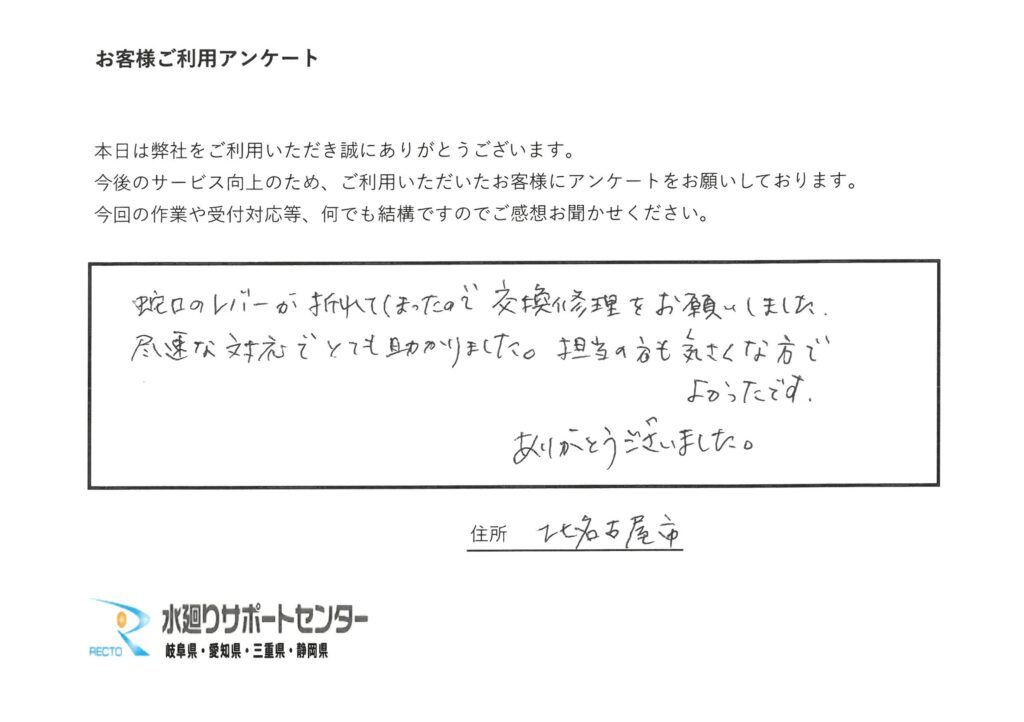 お客様ご利用アンケート
本日は弊社をご利用いただき誠にありがとうございます。
今後のサービス向上のため、ご利用いただいたお客様にアンケートをお願いしております。
今回の作業や受付対応等、何でも結構ですのでご感想お聞かせください。
蛇口のレバーが折れてしまったので交換修理をお願いしました.
尽速な対応でとても助かりました。担当の方も気さくな方で
よかったです.
ありがとうございました。
住所 北名古屋市
RECTO 水廻りサポートセンター
岐阜県・愛知県・三重県・静岡県